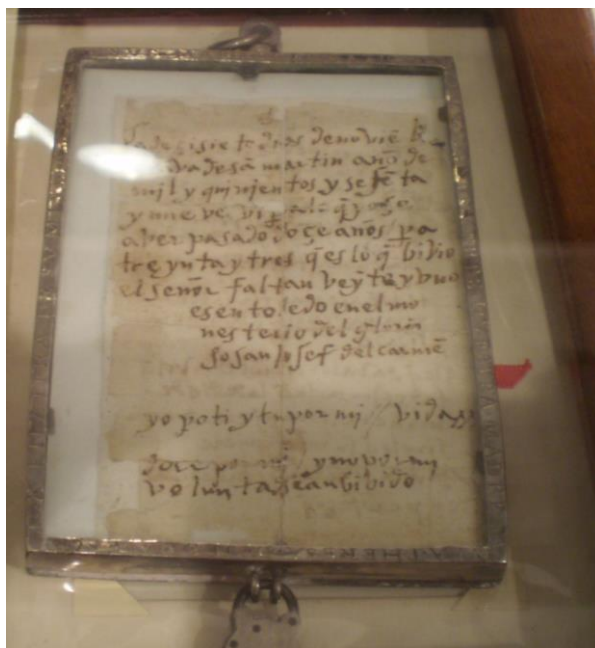 diez i siete dias de noviẽbre
octava de sã martin año de
mil y quinientos y sesẽta
y nueve vi
aver pasado doçe años pa
treynta y tres q̃ es lo q̃ bivio
el señor faltan veyte y uno
es en toledo en el mo
nesterio del glorio
so san josef del carmẽ
yo por ti y tu por mi vida
doce por mi y no por mi
voluntad se an bibido